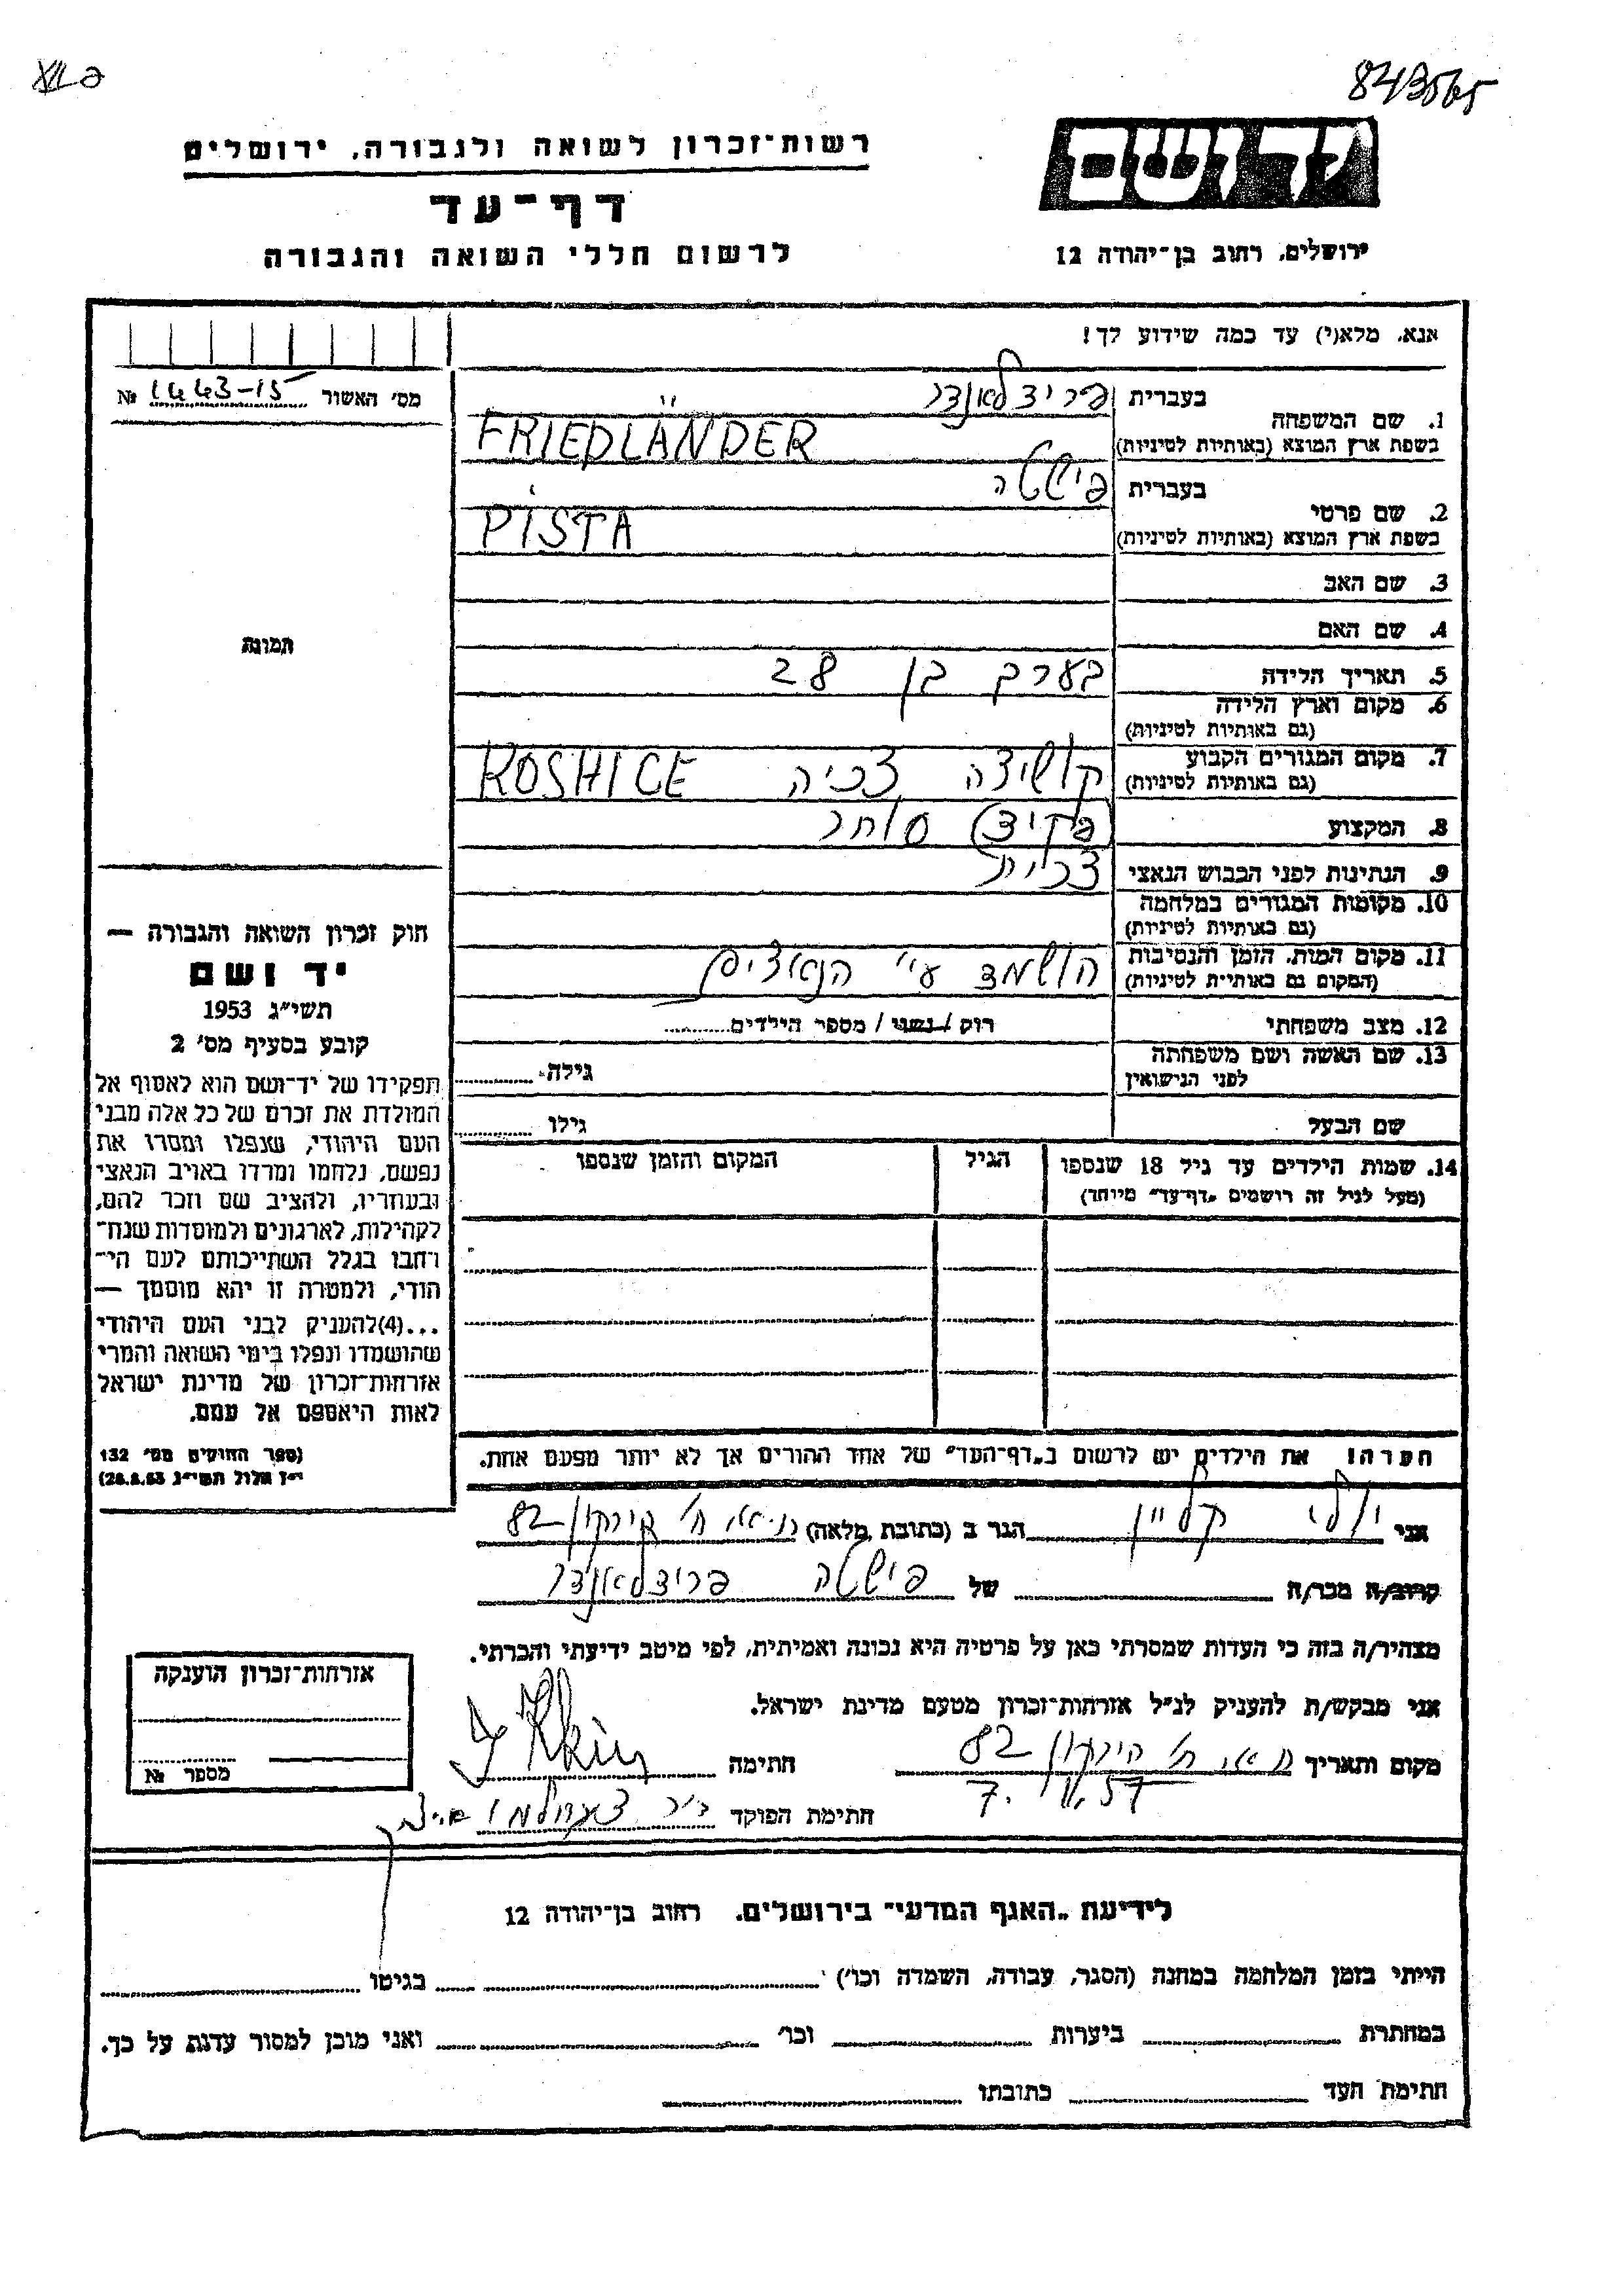 843565
רשות־זכרון לשואה ולגבורה, ירושלים
דף־עד
לרשום חללי השואה והגבורה
יד ושם
ירושלים, רחוב בן־יהודה 12
אנא, מלא(י) עד כמה שידוע לך!
מס' האשור 1443-15 №
1. שם המשפחה בעברית פרידלאנדר
בשפת ארץ המוצא (באותיות לטיניות) FRIEDLÄNDER
2. שם פרטי בעברית פישטה
בשפת ארץ המוצא (באותיות לטיניות) PISTA
3. שם האב
4. שם האם
תמונה
5. תאריך הלידה בערך בן 28
6. מקום וארץ הלידה
(גם באותיות לטיניות)
7. מקום המגורים הקבוע קושיצה צכיה KOSHICE
(גם באותיות לטיניות)
8. המקצוע פקיד) סוחר
9. הנתינות לפני הכבוש הנאצי צכית
10. מקומות המגורים במלחמה
(גם באותיות לטיניות)
11. מקום המות, הזמן והנסיבות הושמד ע״י הנאצים
(המקום גם באותיית לטיניות)
12. מצב משפחתי רוק / נשוי / מספר הילדים
13. שם האשה ושם משפחתה גילה
לפני הנישואין
שם הבעל גילו
14. שמות הילדים עד גיל 18 שנספו הגיל המקום והזמן שנספו
(מעל לגיל זה רושמים „דף־עד" מיוחד)
חוק זכרון השואה והגבורה —
יד ושם
תשי״ג 1953
קובע בסעיף מס' 2
תפקידו של יד־ושם הוא לאסוף אל
המולדת את זכרם של כל אלה מבני
העם היהודי, שנפלו ומסרו את
נפשם, נלחמו ומרדו באויב הנאצי
ובעוזריו, ולהציב שם וזכר להם,
לקהילות, לארגונים ולמוסדות שנח־
רחבו בגלל השתייכותם לעם הי־
הודי, ולמטרה זו יהא מוסמך —
...(4)להעניק לבני העם היהודי
שהושמדו ונפלו בימי השואה והמרי
אזרחות־זכרון של מדינת ישראל
לאות היאספם אל עמם.
(ספר החוקים מס' 132
י״ז אלול תשי״ג 28.8.53)
הערה! את הילדים יש לרשום ב„דף־העד" של אחד ההורים אך לא יותר מפעם אחת.
אני קליין הגר ב (כתובת מלאה) הירקון 82
קרוב/ה מכר/ה של פישטה פרידלאנדר
מצהיר/ה בזה כי העדות שמסרתי כאן על פרטיה היא נכונה ואמיתית, לפי מיטב ידיעתי והכרתי.
אני מבקש/ת להעניק לנ״ל אזרחות־זכרון מטעם מדינת ישראל.
מקום ותאריך הירקון 82 חתימה
7. 11. 57
חתימת הפוקד
אזרחות־זכרון הוענקה
מספר №
לידיעת „האגף המדעי" בירושלים, רחוב בן־יהודה 12
הייתי בזמן המלחמה במחנה (הסגר, עבודה, השמדה וכו') בגיטו
במחתרת ביערות וכו' ואני מוכן למסור עדות על כך.
חתימת העד כתובתו